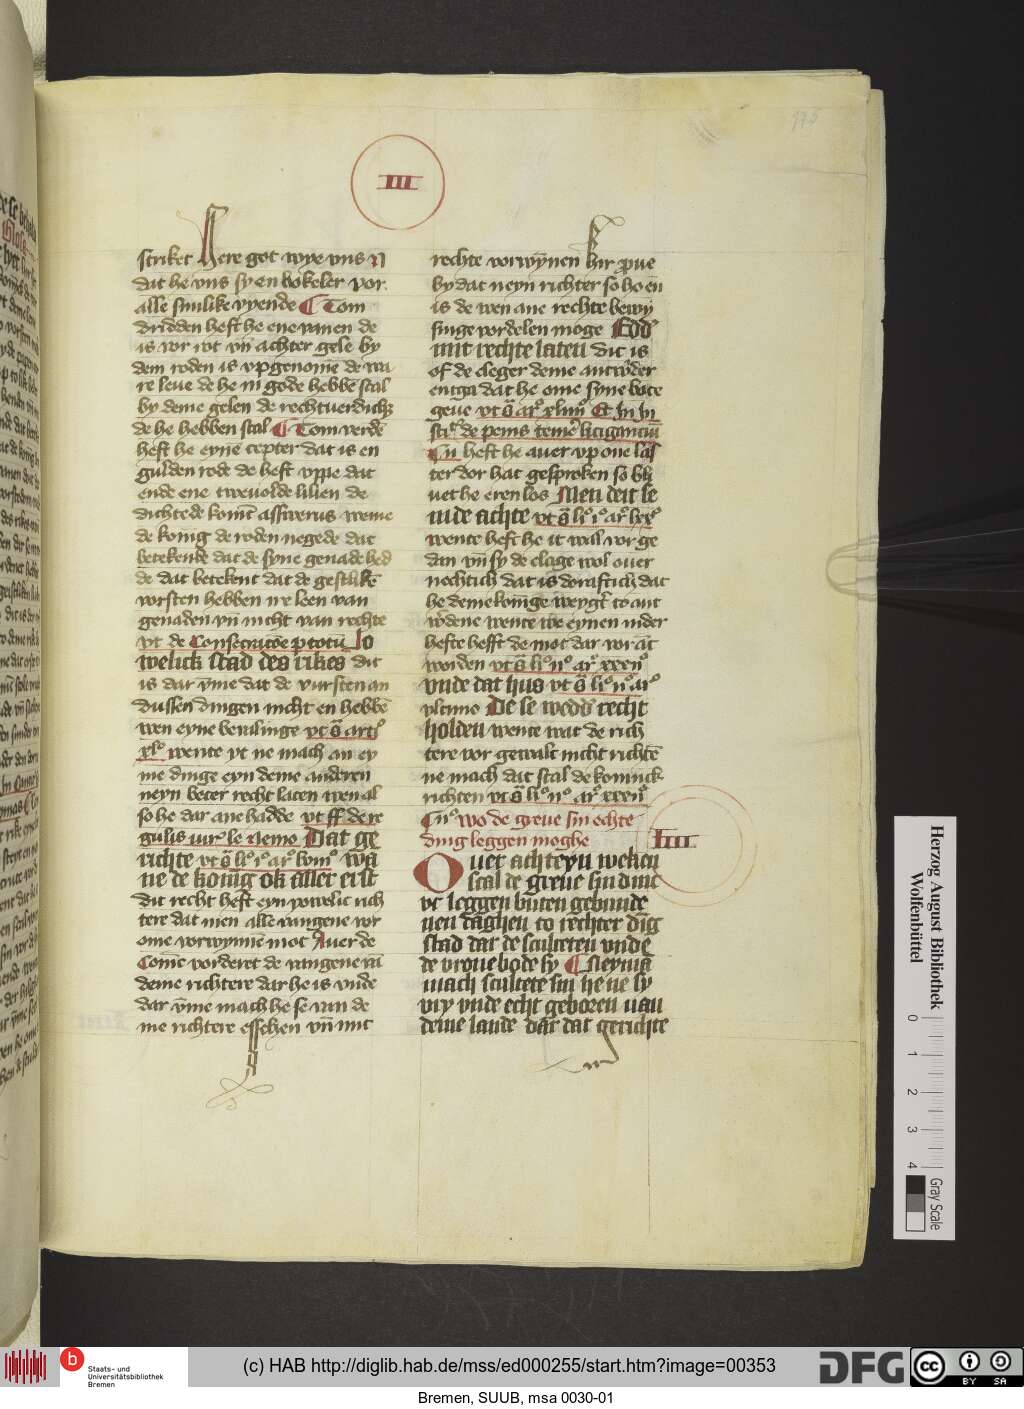 175
III
striket Here got wyte vns n
dat he vns sy en bokeler vor
alle snnlike vyende Tom
drudden heft he ene vanen de
is vor rot vn̄ achter gele by
dem roden is vpgenomē de wa
re leue de he in gode hebbē scal
by deme gelen de rechtuerdich
de he hebben scal Tom verdē
heft he eynē cepter dat is en
gulden rode de heft vppe dat
ende ene twevolde lilien de
dichtede konīc assverus weme
de konīg de roden negede dat
betekende dat de syne genade hed
de dat betekent dat de gestlikē
vorsten hebben ire leen van
genaden vn̄ nicht van rechte
vt de Consecracōe ꝑ totū Jo
welick stad des rikes dit
is dar v̄me dat de vursten an
dussen dingen nicht en hebbē
wen eyne bewisinge vt ō artᵒ
xlᵒ wente yt ne mach an ey
me dinge eyn deme anderen
neyn beter recht laten wen al
so he dar ane hadde vt ff de re
gulis iurᵉ le Nemo Dat ge
richte vt ō liᵒ iᵒ arᵒ lviiiᵒ wā
ne de konīg ok aller erst
dit recht heft eyn yowelic rich
tere dat men alle vangene vor
ome vorwynnē mot Auer de
Comēc vorderet de vangene vā
deme richtere dar he is vnde
dar v̄me mach he se van de
me richtere esschen vn̄ mit
rechte vorwȳnen hir prue
by dat neyn richter so ho en
is de wen ane rechte bewy
singe vordelen moge Eddᵉ
mit rechte laten dit is
of de cleger deme antwᵒder
entga dat he ome syne bote
geue vt ō arᵒ xliiiᵒ Et In In
stiᵗ de penis temeᵉ litiganciū
En heft he auer vp one las
ter dor hat gesproken so bli
uet he eren los Men deit se
in de achte vt ō liᵒ iᵒ arᵒ lxxᵒ
wente heft he it wal vorge
dan vn̄ sy de clage wol ouer
nechtich dat is doraftich dat
he deme konīge weygrᵗ to ant
wᵒdene wente we eynen in der
hefte hefft de mot dar vor āt
worden vt ō liᵒ iiᵒ arᵒ xxxiiᵒ
vnde dat hus vt ō liᵒ iiᵒ arᵒ
vltimo De se weddᵉ recht
holden wente wat de rich
tere vor gewalt nicht richtē
ne mach dat scal de koninck
richten vt ō liᵒ iiᵒ arᵒ xxxiiᵒ
Cᵐᵒ wo de greue sin echte
ding leggen moghe IIII
Ouer achteyn weken
scal de greue sin dinc
vt leggen buten gebunde
nen daghen to rechter dīg
stad dar de sculteten vnde
de vronebode sy Neyman
mach scultete sin he ne sy
vry vnde echt geboren van
deme lande dar dat gerichte
Herzog August Bibliothek
Wolfenbüttel
0 1 2 3 4
Gray Scale
b
Staats- und
Universitätsbibliothek
Bremen
(c) HAB http://diglib.hab.de/mss/ed000255/start.htm?image=00353
DFG
cc
BY SA
Bremen, SUUB, msa 0030-01